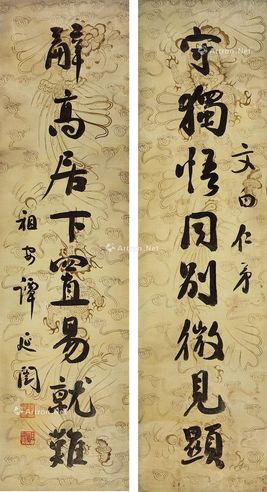 文白仁弟
守獨悟同別微見顯
辭高居下置易就難
祖安譚延闓
Artron.Net